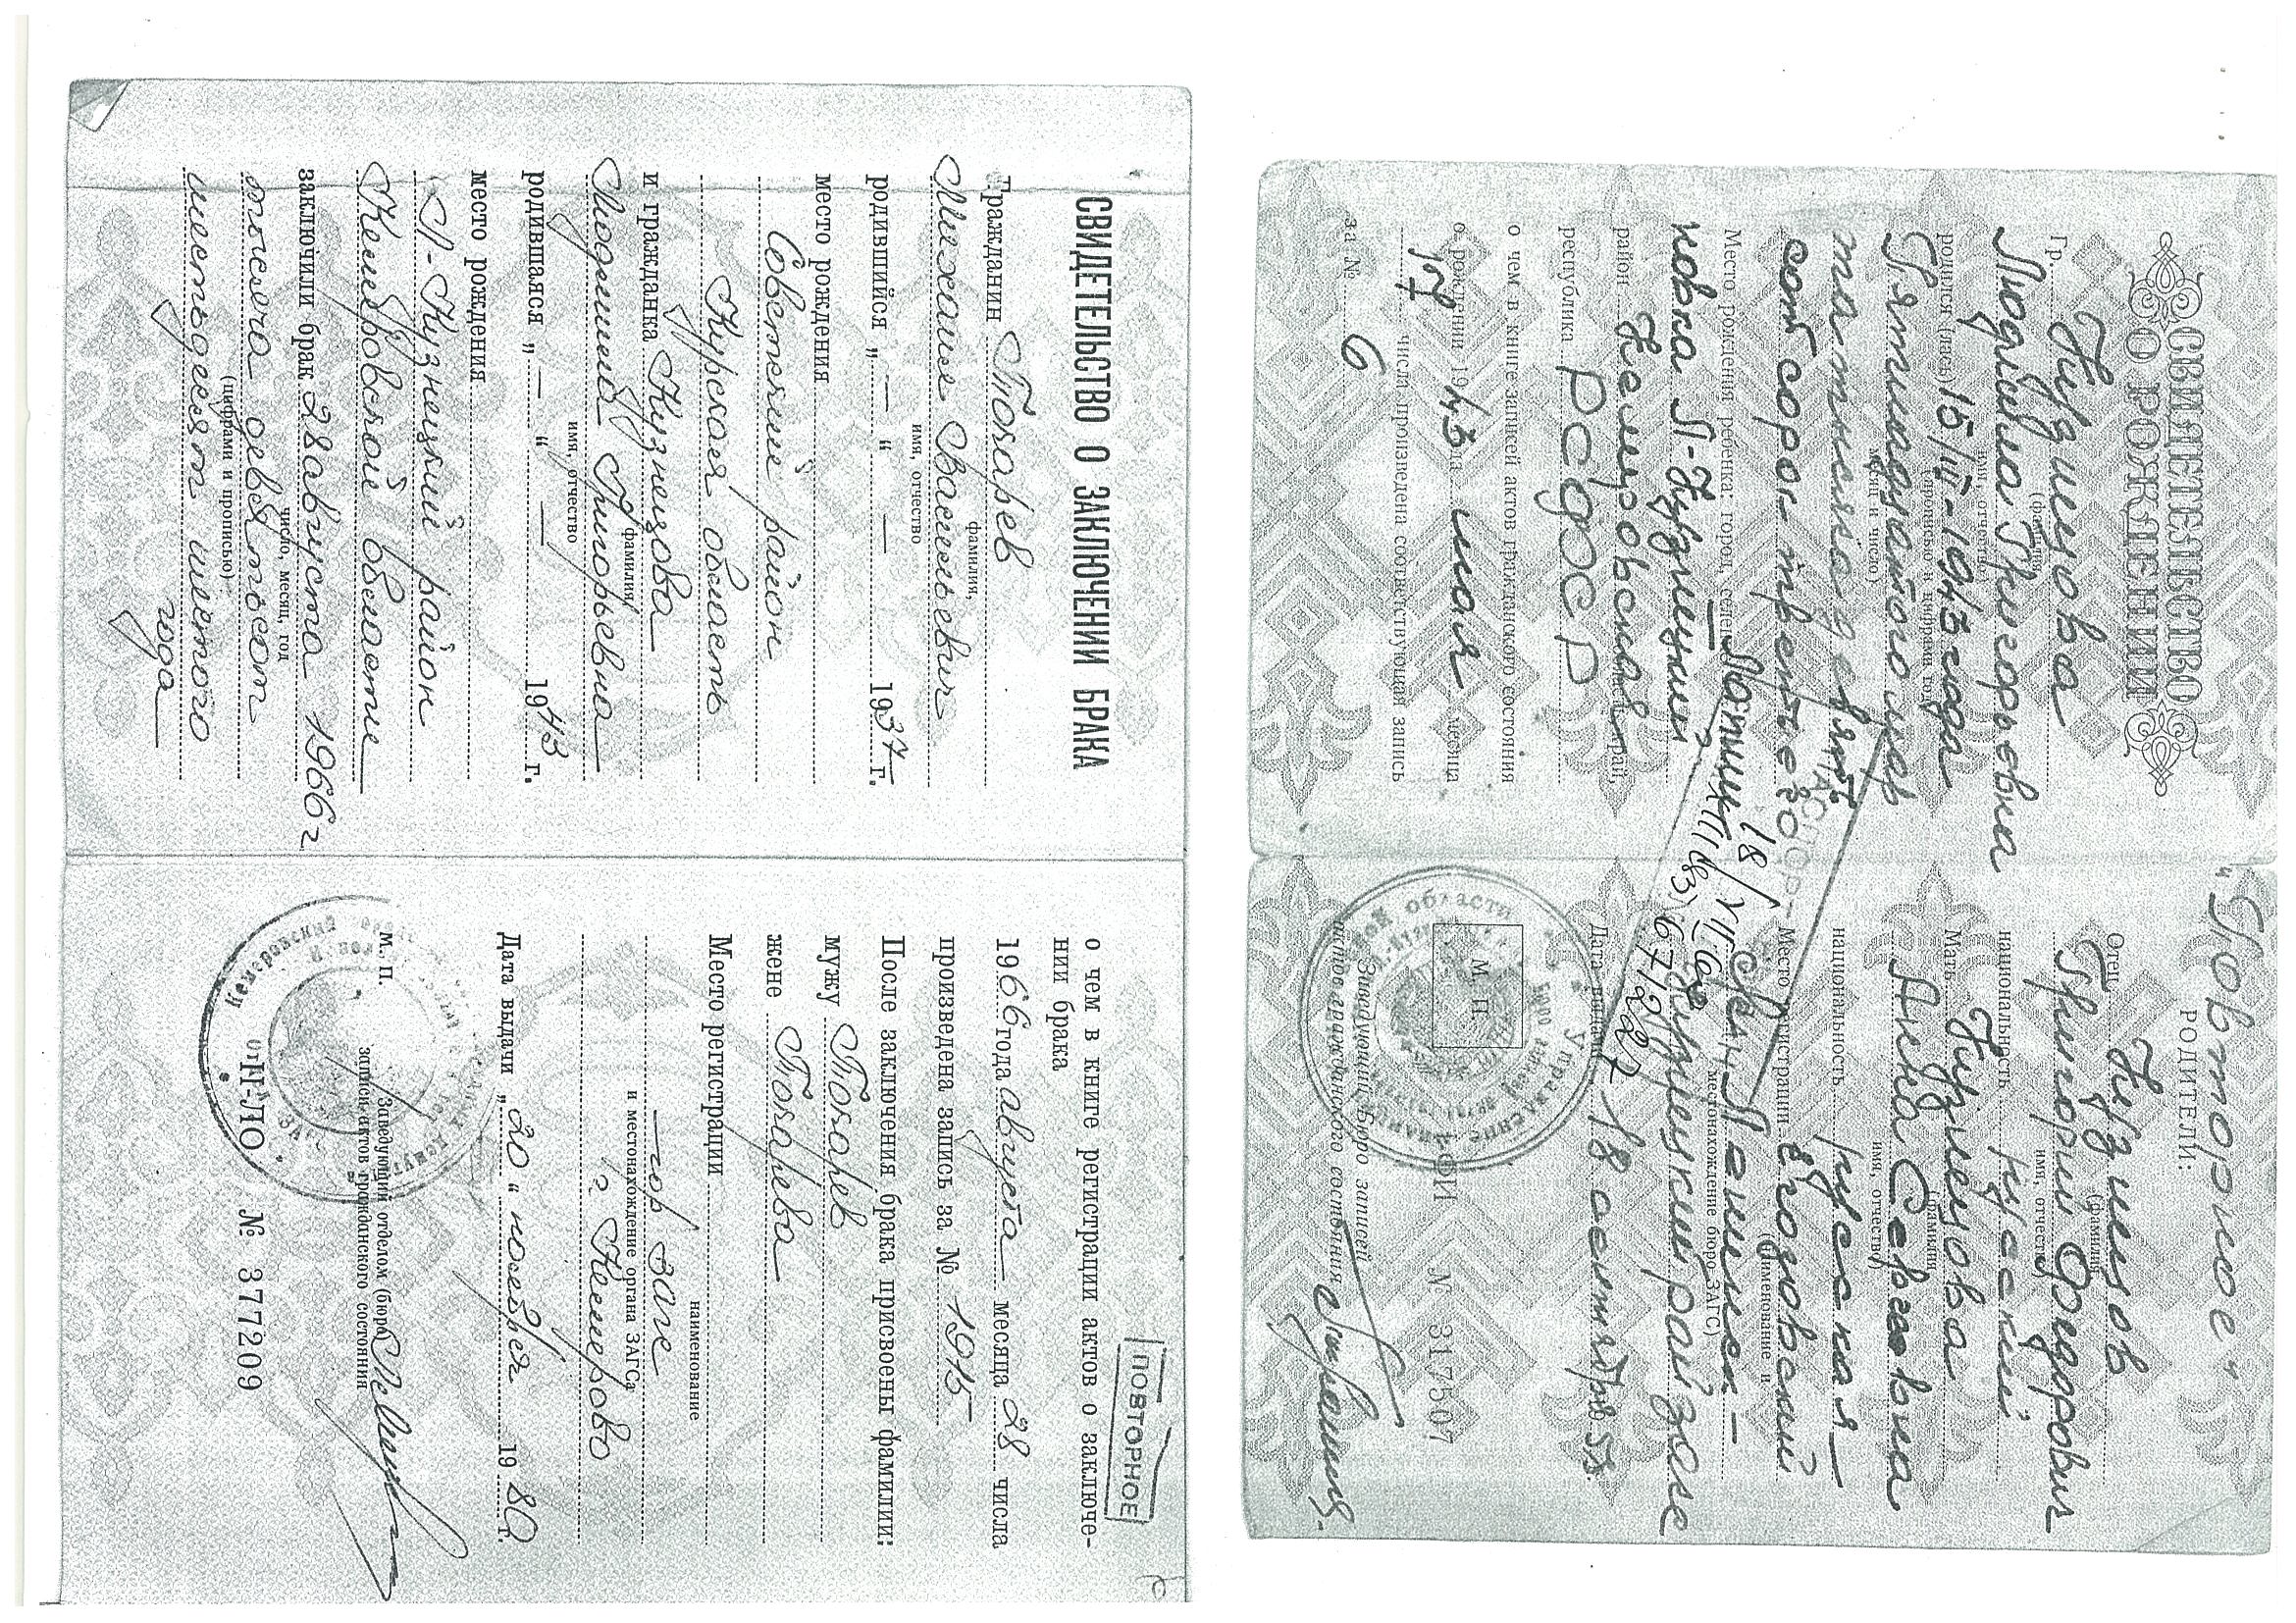 СВИДЕТЕЛЬСТВО О ЗАКЛЮЧЕНИИ БРАКА
Гражданин Токарев
фамилия,
Михаил Васильевич
имя, отчество
родившийся „ — “ — 1937 г.
место рождения
Советский район
Курская область
и гражданка Кузнецова
фамилия
Людмила Григорьевна
имя, отчество
родившаяся „ — “ — 1943 г.
место рождения
Л-Кузнецкий район
Кемеровской области
заключили брак 28 августа 1966 г
число, месяц, год
тысяча девятьсот
(цифрами и прописью)
шестьдесят шестого
года
ПОВТОРНОЕ
о чем в книге регистрации актов о заключе-
нии брака
1966 года августа месяца 28 числа
произведена запись за № 1915
После заключения брака присвоены фамилии:
мужу Токарев
жене Токарева
Место регистрации
наименование
гор загс
и местонахождение органа ЗАГСа
г. Кемерово
Дата выдачи „20“ ноября 1980 г.
М. П.
Заведующий отделом (бюро)
записи актов гражданского состояния
II-ЛО № 377209
СВИДЕТЕЛЬСТВО
О РОЖДЕНИИ
Гр. Кузнецова
(фамилия)
Людмила Григорьевна
имя, отчество)
родился (лась) 15/III-1943 года
(прописью и цифрами год,
Пятнадцатого мар
месяц и число)
та тысяча девят
сот сорок третьего
Место рождения ребенка: город, селен
ковка Л-Кузнецкий
район Кемеровская край,
республика РСФСР
о чем в книге записей актов гражданского состояния
о рождении 1943 года мая месяца
17 числа произведена соответствующая запись
за № 6
„Повторное“
РОДИТЕЛИ:
Отец Кузнецов
(фамилия)
Григорий Федорович
имя, отчество)
национальность русский
Мать Кузнецова
(фамилия
Анна Сергеевна
имя, отчество)
национальность русская
Место регистрации Егозовский
(наименование и
местонахождение бюро ЗАГС)
Дата выдачи 18 сентября 58
М. П.
№ 317507
Заведующий Бюро записей
актов гражданского состояния